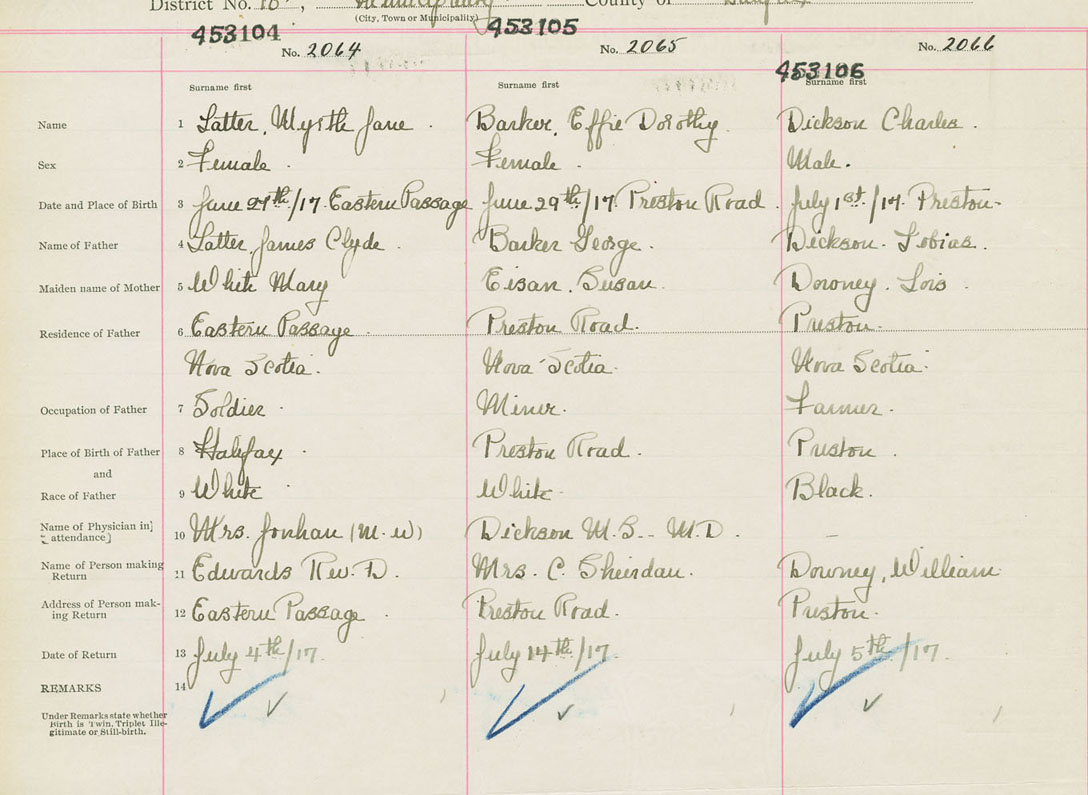 District No. 10, County of Halifax
(City, Town or Municipality)
453104 453105 453106
No. 2064 No. 2065 No. 2066
Surname first Surname first Surname first
Name 1 Latter, Myrtle Jane. Barker, Effie Dorothy. Dickson Charles.
Sex 2 Female. Female. Male.
Date and Place of Birth 3 June 27th/17. Eastern Passage June 29th/17. Preston Road. July 1st/17. Preston-
Name of Father 4 Latter, James Clyde. Barker George. Dickson. Tobias.
Maiden name of Mother 5 White Mary Eisan, Susan. Downey. Lois.
Residence of Father 6 Eastern Passage. Preston Road. Preston.
Nova Scotia. Nova Scotia. Nova Scotia.
Occupation of Father 7 Soldier. Miner. Farmer.
Place of Birth of Father 8 Halifax. Preston Road. Preston.
and
Race of Father 9 White. White. Black.
Name of Physician in attendance 10 Mrs. (M.W) Dickson M.S.- M.D. -
Name of Person making Return 11 Edwards Rev. D. Mrs. C. Downey, William.
Address of Person making Return 12 Eastern Passage. Preston Road. Preston.
Date of Return 13 July 4th/17. July 14th/17. July 5th/17.
REMARKS 14
Under Remarks state whether
Birth is Twin, Triplet Ille-
gitimate or Still-birth.